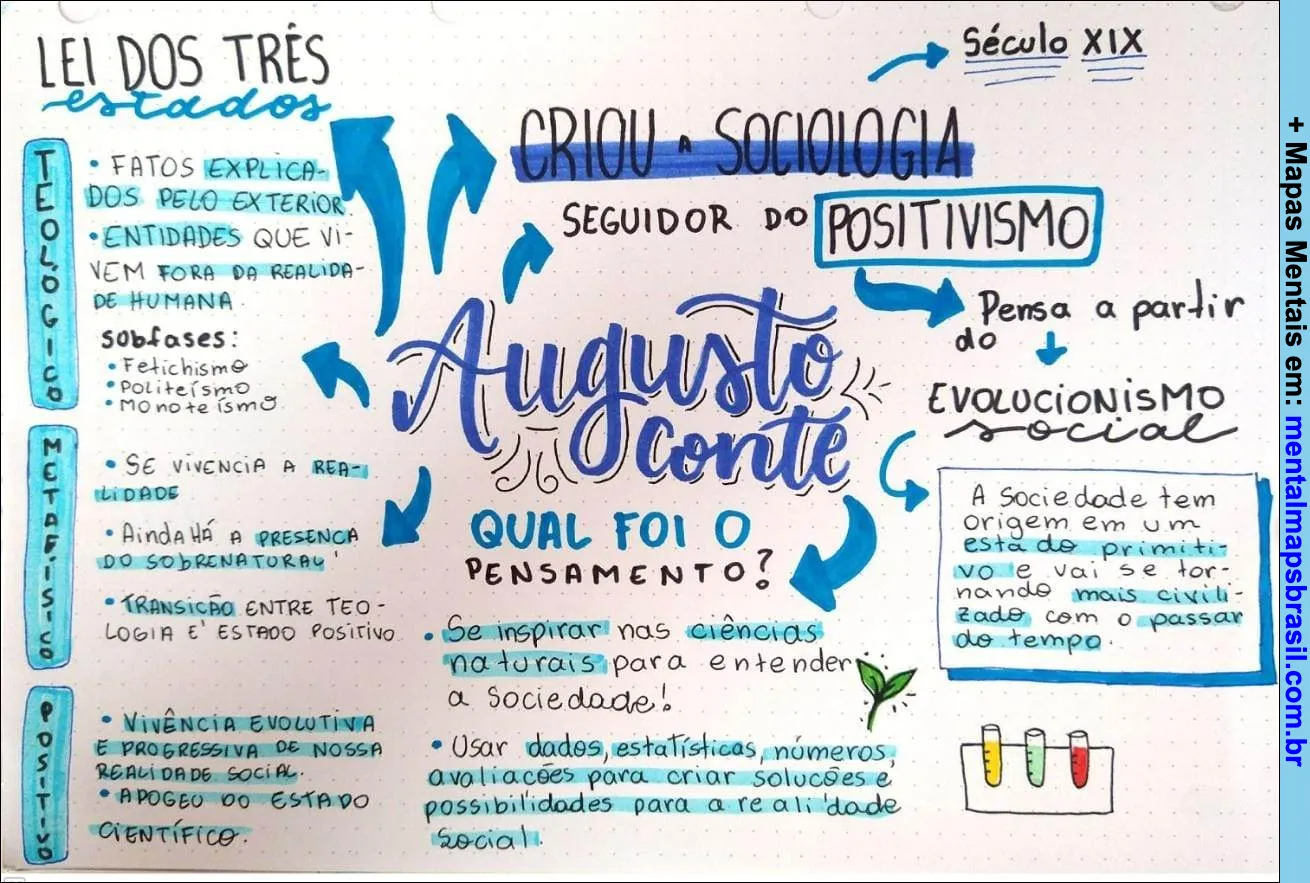 LEI DOS TRÊS
estados
TEOLÓGICO
• FATOS EXPLICA-
DOS PELO EXTERIOR.
• ENTIDADES QUE VI-
VEM FORA DA REALIDA-
DE HUMANA.
sobfases:
• Fetichismo
• Politeísmo
• Monoteísmo.
METAFÍSICO
• SE VIVENCIA A REA-
LIDADE
• Ainda HÁ A PRESENCA
DO SOBRENATURAL
• TRANSIÇÃO ENTRE TEO-
LOGIA E ESTADO POSITIVO.
POSITIVO
• VIVÊNCIA EVOLUTIVA
E PROGRESSIVA DE NOSSA
REALIDADE SOCIAL.
• APOGEU DO ESTADO
CIENTÍFICO.
Século XIX
CRIOU A SOCIOLOGIA
SEGUIDOR DO POSITIVISMO
Pensa a partir
do
EVOLUCIONISMO
social
A Sociedade tem
origem em um
estado primiti-
vo e vai se tor-
nando mais civili-
zado com o passar
do tempo.
Augusto
conte
QUAL FOI O
PENSAMENTO?
• Se inspirar nas ciências
naturais para entender
a Sociedade!
• Usar dados, estatísticas, números,
avaliacões para criar solucões e
possibilidades para a realidade
social.
+ Mapas Mentais em: mentalmapsbrasil.com.br